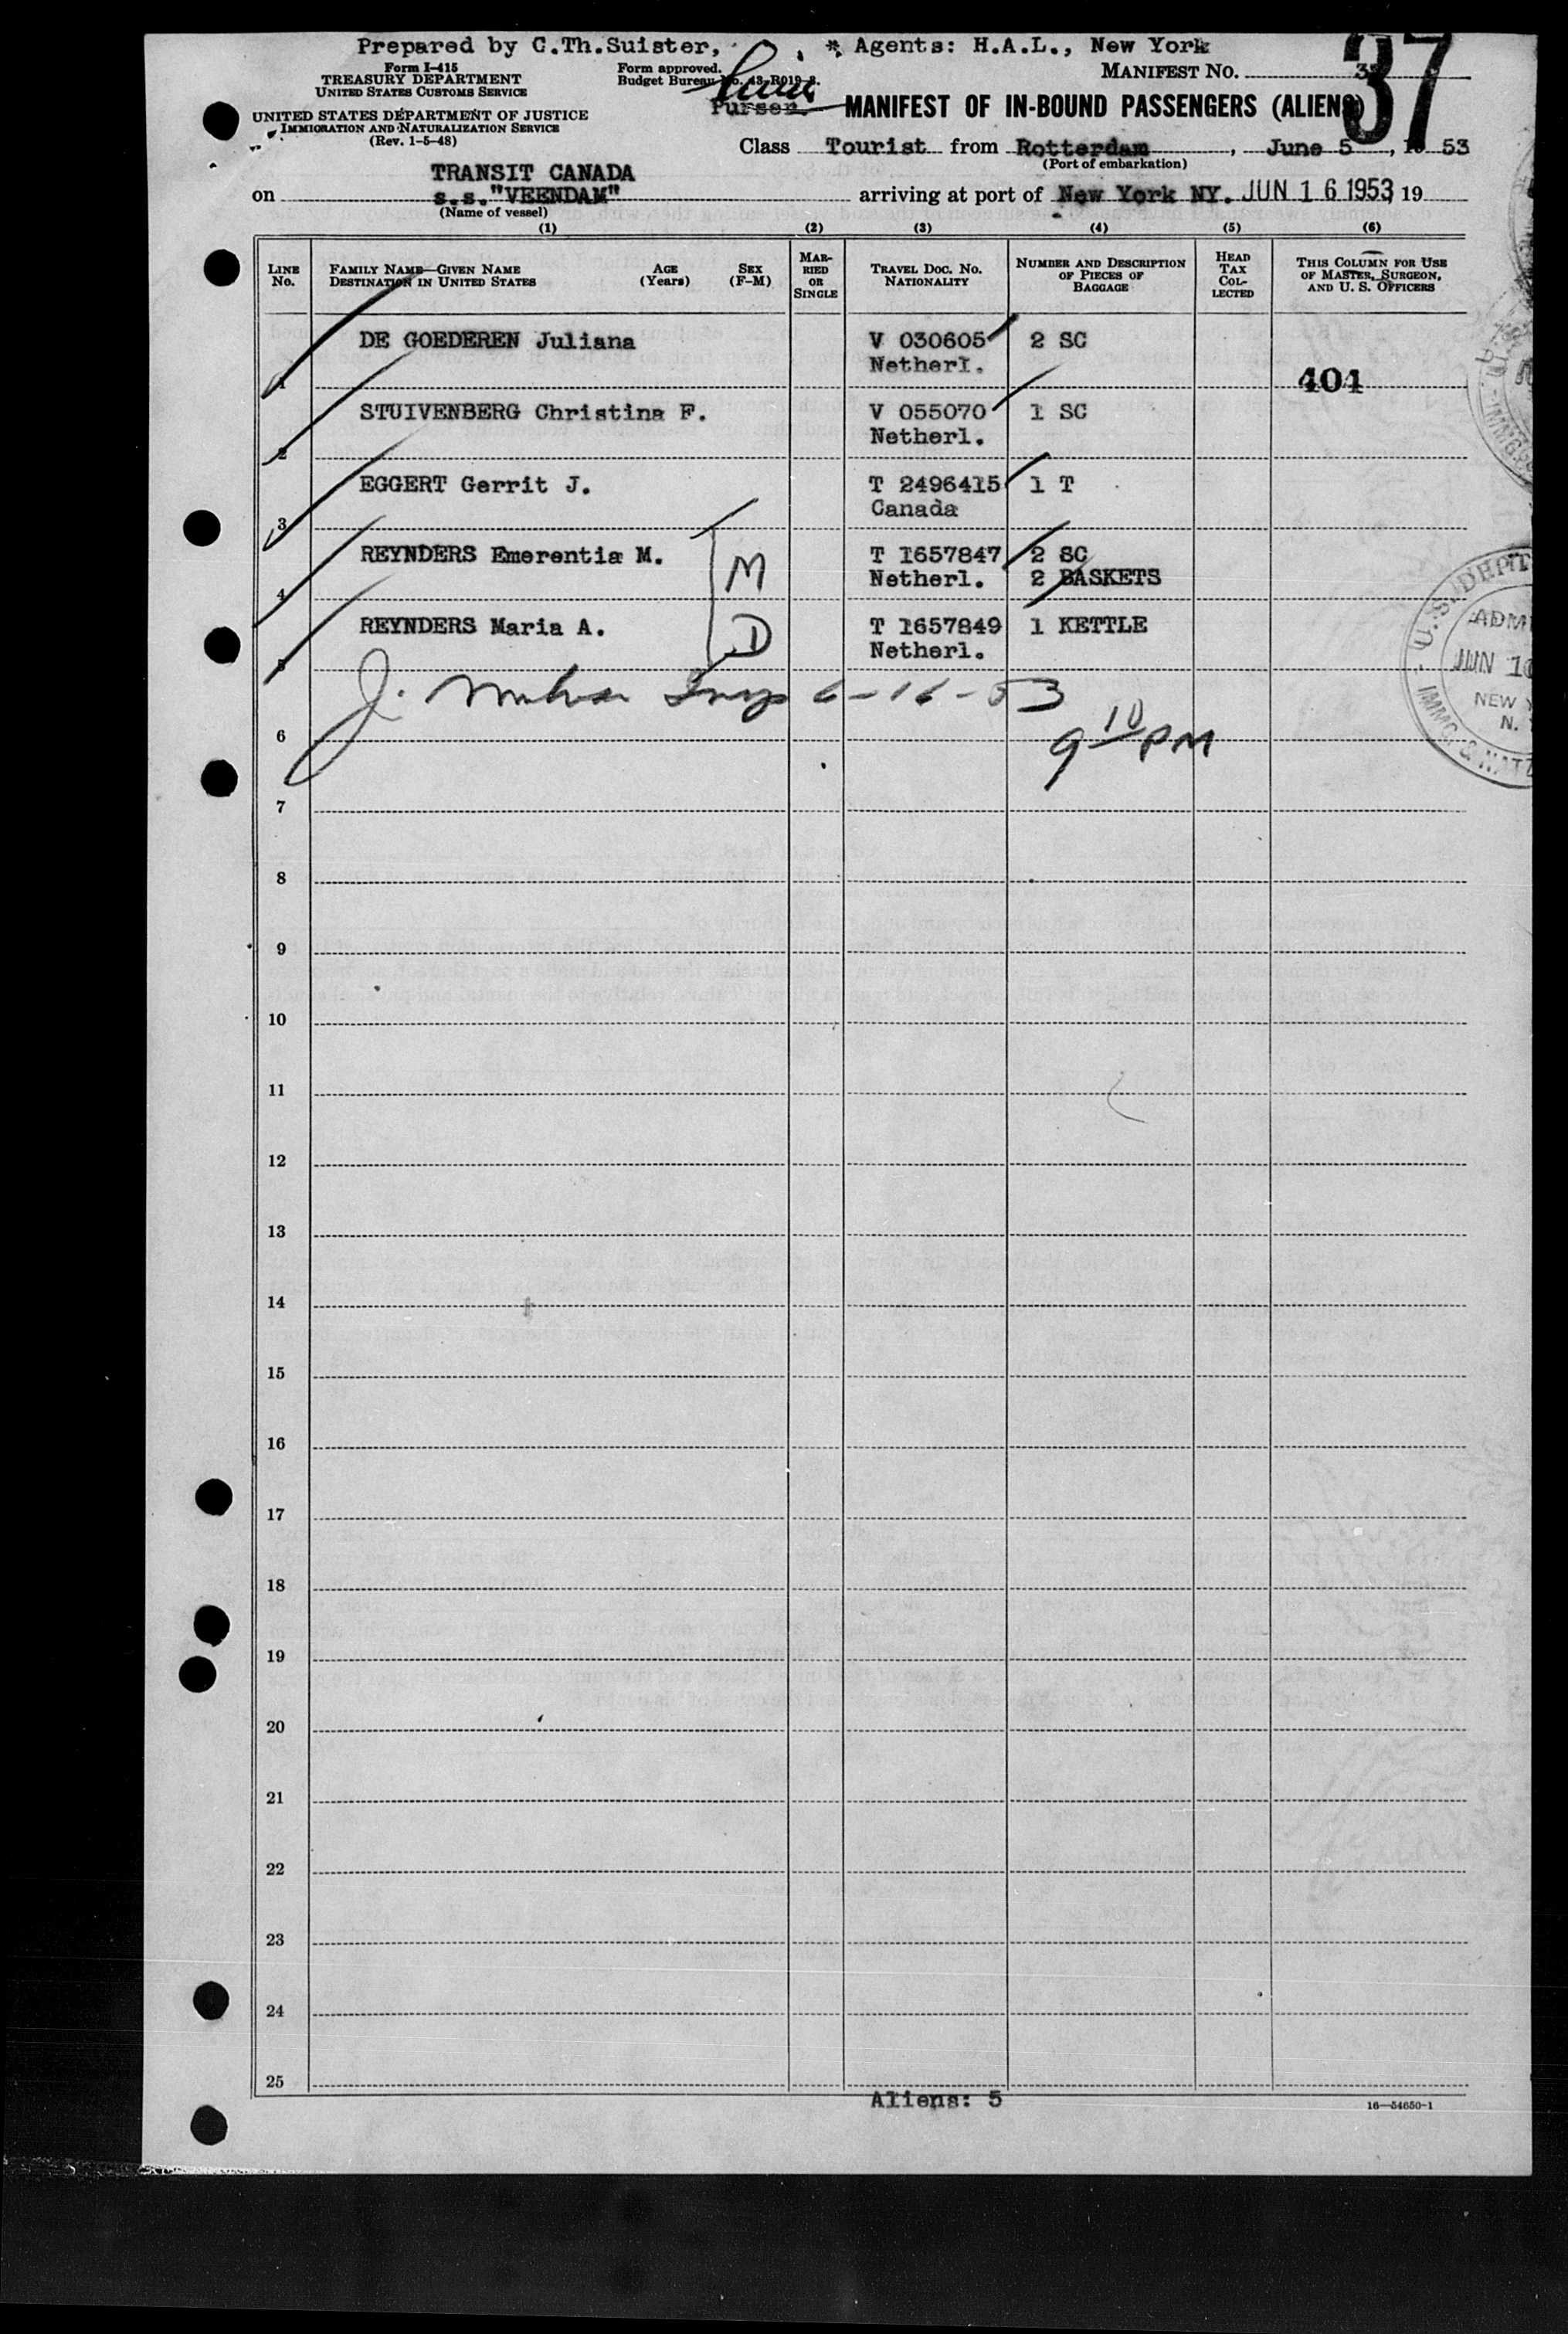 Prepared by C.Th.Suister, * Agents: H.A.L., New York
Form I-415
TREASURY DEPARTMENT
UNITED STATES CUSTOMS SERVICE
UNITED STATES DEPARTMENT OF JUSTICE
IMMIGRATION AND NATURALIZATION SERVICE
(Rev. 1-5-48)
Form approved.
Budget Bureau No. 43-R019-2.
Purser.
MANIFEST NO.
37
MANIFEST OF IN-BOUND PASSENGERS (ALIENS)
Class Tourist from Rotterdam, June 5, 19 53
(Port of embarkation)
TRANSIT CANADA
on s.s. "VEENDAM" arriving at port of New York NY. JUN 16 1953, 19
(Name of vessel)
(1) (2) (3) (4) (5) (6)
LINE No. FAMILY NAME—GIVEN NAME DESTINATION IN UNITED STATES AGE (Years) SEX (F-M) MARRIED OR SINGLE TRAVEL DOC. NO. NATIONALITY NUMBER AND DESCRIPTION OF PIECES OF BAGGAGE HEAD TAX COLLECTED THIS COLUMN FOR USE OF MASTER, SURGEON, AND U. S. OFFICERS
1 DE GOEDEREN Juliana V 030605 2 SC
Netherl. 404
2 STUIVENBERG Christina F. V 055070 1 SC
Netherl.
3 EGGERT Gerrit J. T 2496415 1 T
Canada
4 REYNDERS Emerentia M. M T 1657847 2 SC
Netherl. 2 BASKETS
5 REYNDERS Maria A. D T 1657849 1 KETTLE
Netherl.
J. Insp 6-16-53
9 10 PM
6
7
8
9
10
11
12
13
14
15
16
17
18
19
20
21
22
23
24
25
Aliens: 5
16—54650-1
U. S. DEPT
ADM
JUN 16
NEW
N.
IMMG. & NATZ